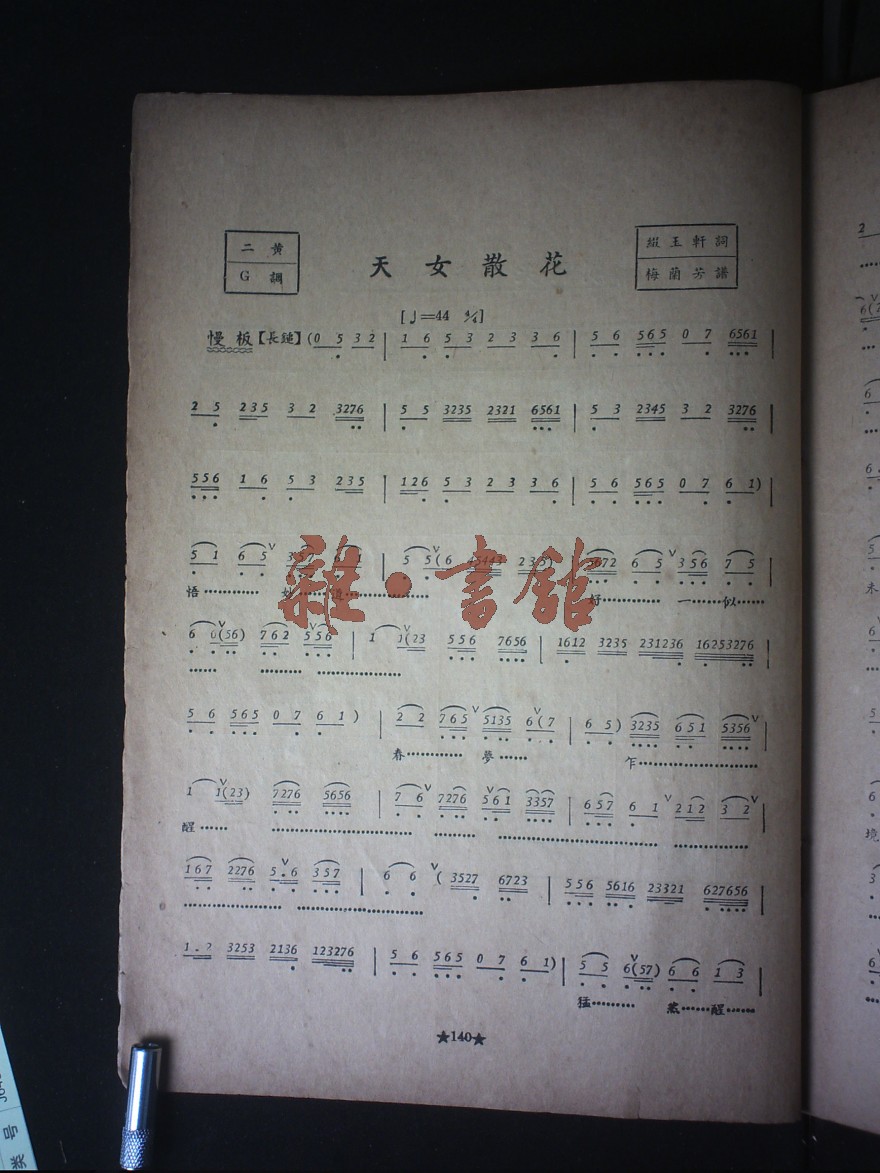 二 黄
G 調
天 女 散 花
綴 玉 軒 詞
梅 蘭 芳 譜
[♩=44 4/4]
慢 板【長鎚】(0 5 3 2 | 1 6 5 3 2 3 3 6 | 5 6 565 0 7 6561 |
2 5 235 3 2 3276 | 5 5 3235 2321 6561 | 5 3 2345 3 2 3276 |
556 1 6 5 3 235 | 126 5 3 2 3 3 6 | 5 6 565 0 7 6 1)
5 1 6 5 357 6 1 | 5 5(6 45443 235) 5672 6 5 356 7 5
悟 妙 道 好 一 似
6 0(56) 762 556 | 1 1(23 556 7656 | 1612 3235 231236 16253276 |
5 6 565 0 7 6 1) | 2 2 765 5135 6(7 | 6 5) 3235 651 5356 |
春 夢 乍
1 1(23) 7276 5656 | 7 6 7276 561 3357 | 657 6 1 212 3 2 |
醒
167 2276 5.6 357 | 6 6 (3527 6723 | 556 5616 23321 627656 |
1.2 3253 2136 123276 | 5 6 565 0 7 6 1) | 5 5 6(57) 6 6 1 3 |
猛 醒
★140★
雜·書館
2
6
类 号